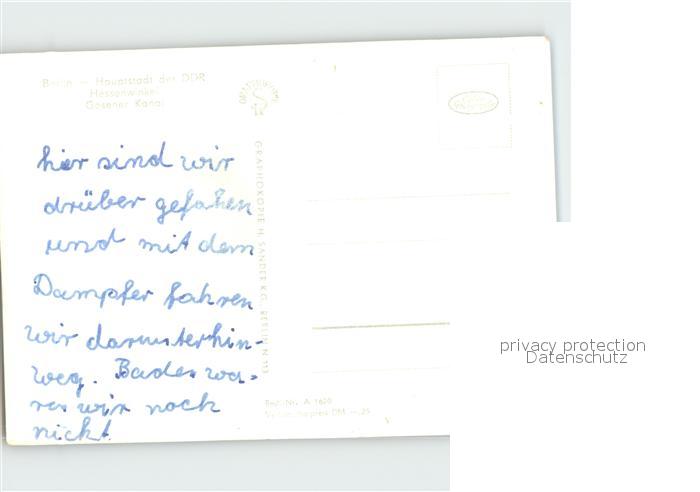 Berlin — Hauptstadt der DDR
Hessenwinkel
Gosener Kanal
hier sind wir
drüber gefahren
und mit dem
Dampfer fahren
wir darunterhin-
weg. Baden wa-
ren wir noch
nicht!
GRAPHOKOPIE H. SANDER K.G., BERLIN N 113
Best.-Nr. A 1620
Verbraucherpreis DM —,25
privacy protection
Datenschutz